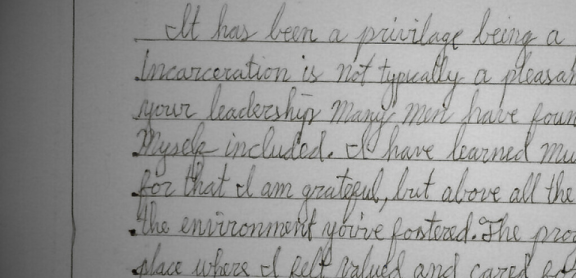 It has been a privilage being a
Incarceration is not typically a pleasan
your leadership many men have foun
Myself included. I have learned mu
for that I am grateful, but above all the
the environment you've fostered. The pro
place where I felt valued and cared